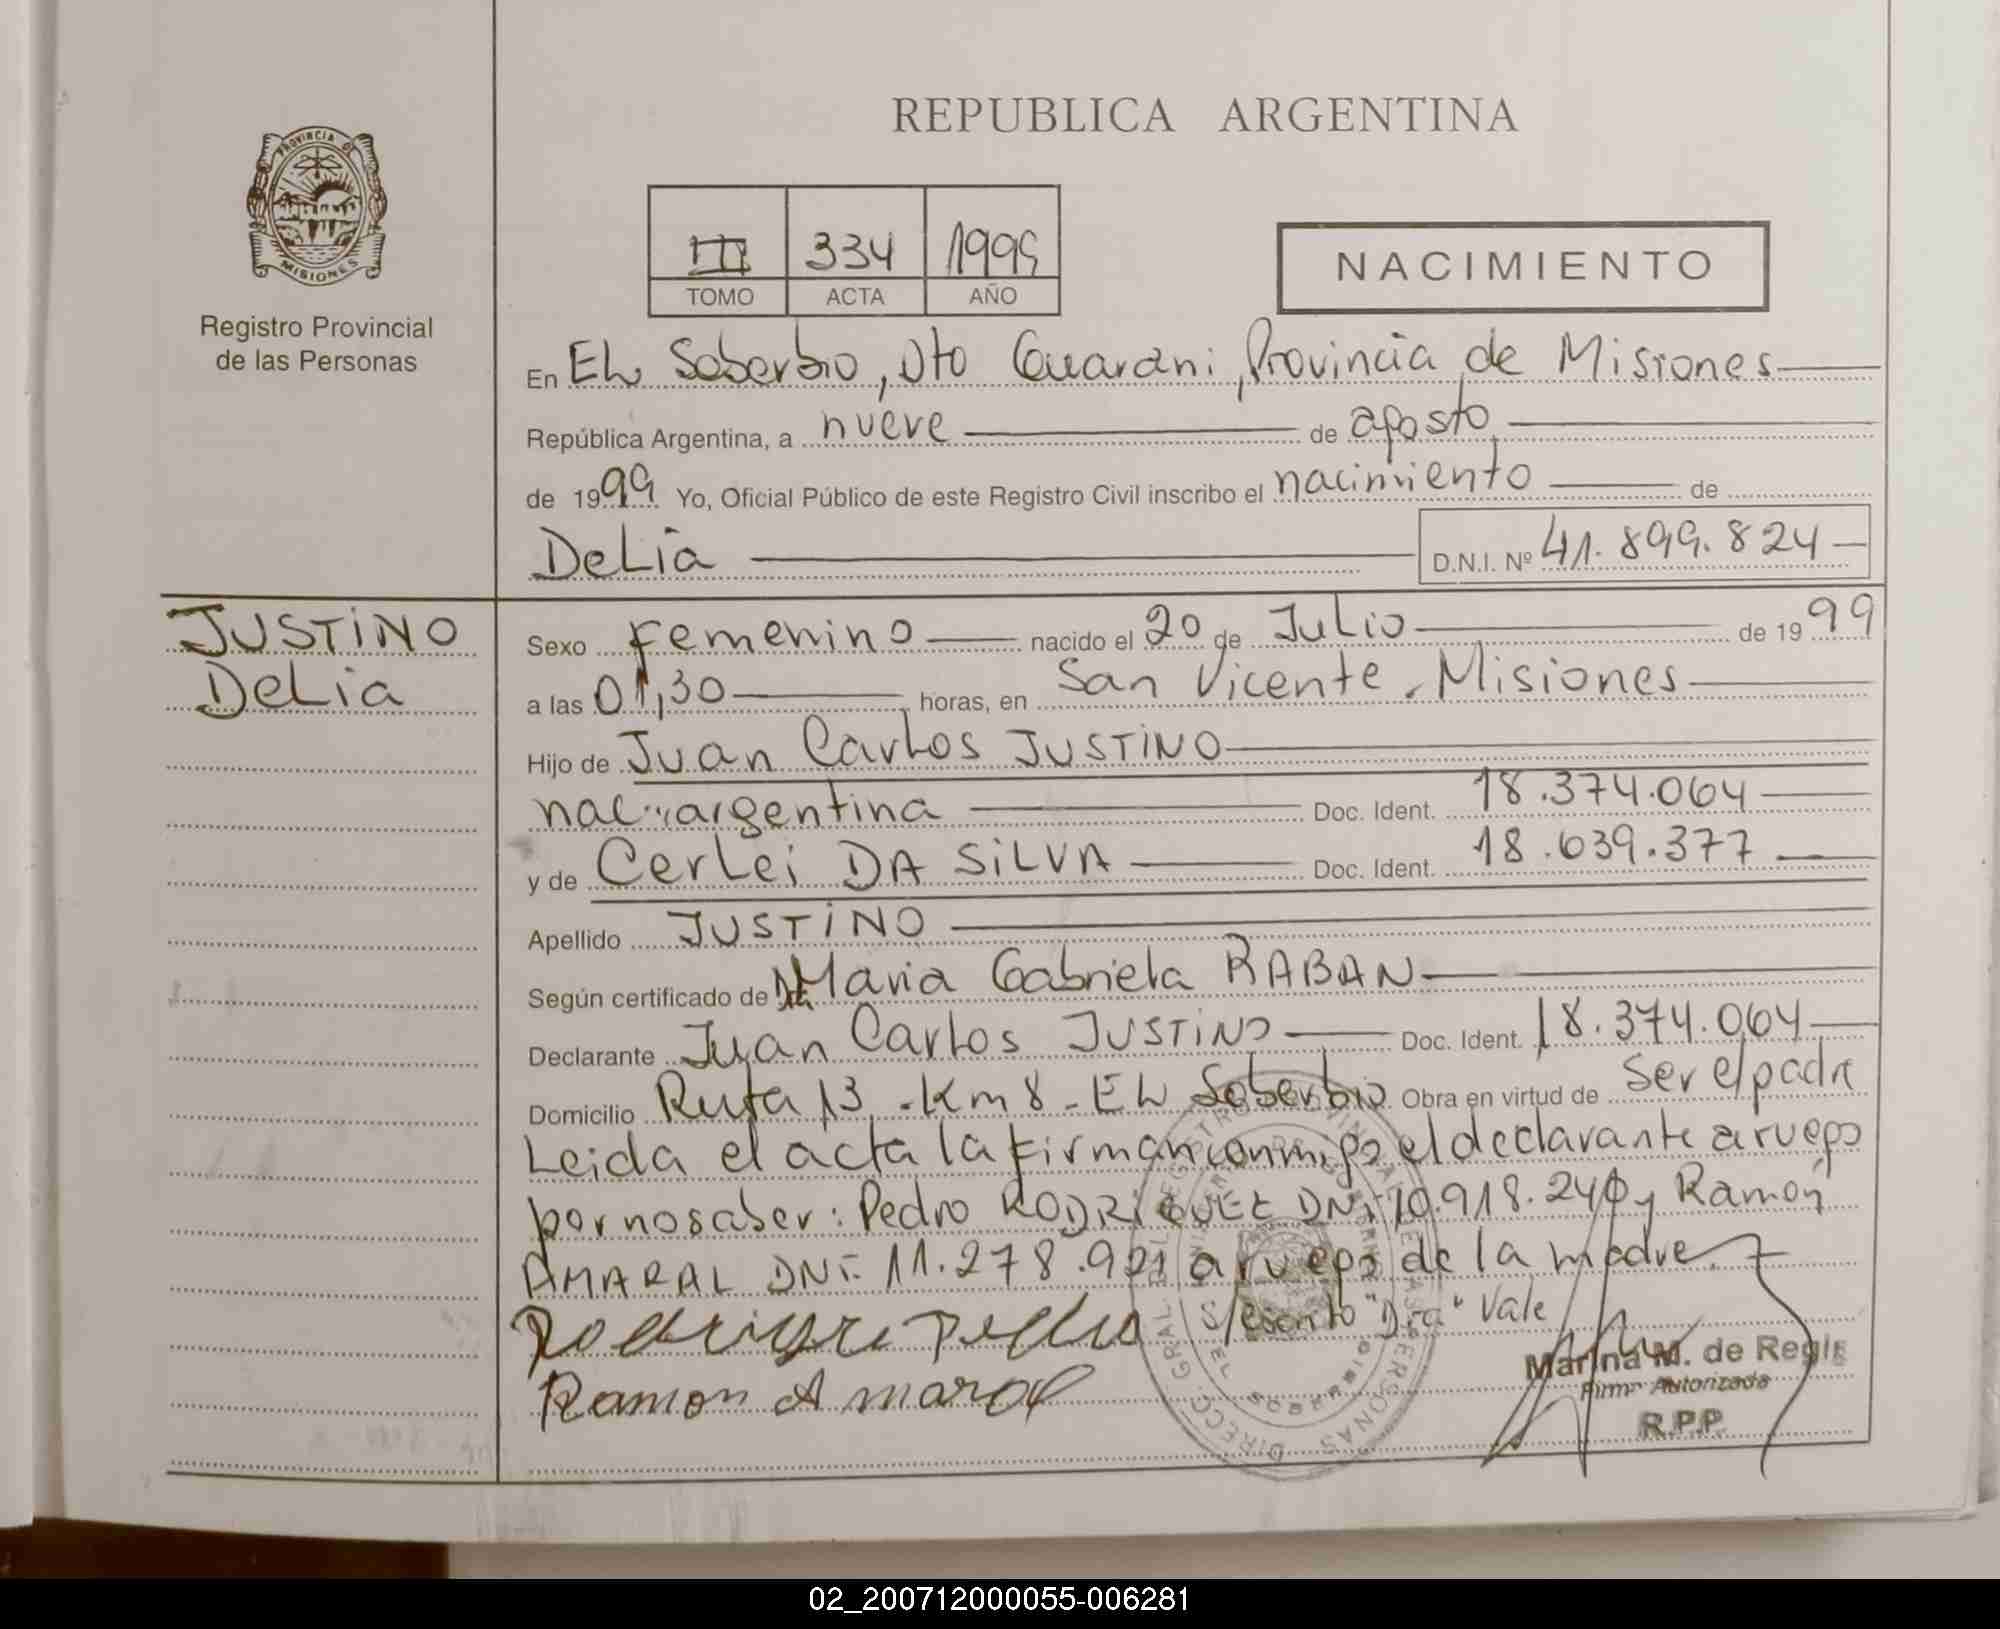 REPUBLICA ARGENTINA
PROVINCIA DE
MISIONES
Registro Provincial
de las Personas
III 334 1999
TOMO ACTA AÑO
NACIMIENTO
En EL Soberbio, Dto Guarani, Provincia de Misiones
República Argentina, a nueve de agosto
de 1999 Yo, Oficial Público de este Registro Civil inscribo el nacimiento de
DeLia D.N.I. Nº 41.899.824
JUSTINO
DeLia
Sexo Femenino nacido el 20 de Julio de 1999
a las 01,30 horas, en San Vicente - Misiones
Hijo de Juan Carlos JUSTINO
nac. argentina Doc. Ident. 18.374.064
y de CerLei DA SiLVA Doc. Ident. 18.639.377
Apellido JUSTINO
Según certificado de Maria Gabriela RABAN
Declarante Juan Carlos JUSTINO Doc. Ident. 18.374.064
Domicilio Ruta 13 - Km 8 - EL Soberbio Obra en virtud de Ser el padre
Leida el acta la firman conmigo el declarante a ruego
por no saber: Pedro RODRIGUEZ DNI 10.918.240 y Ramon
AMARAL DNI. 11.278.921 a ruego de la madre.
S/escrito "Dra" Vale
Rodrigue Pedro
Ramon Amaral
Marina M. de Regis
Firma Autorizada
R.P.P.
02_200712000055-006281